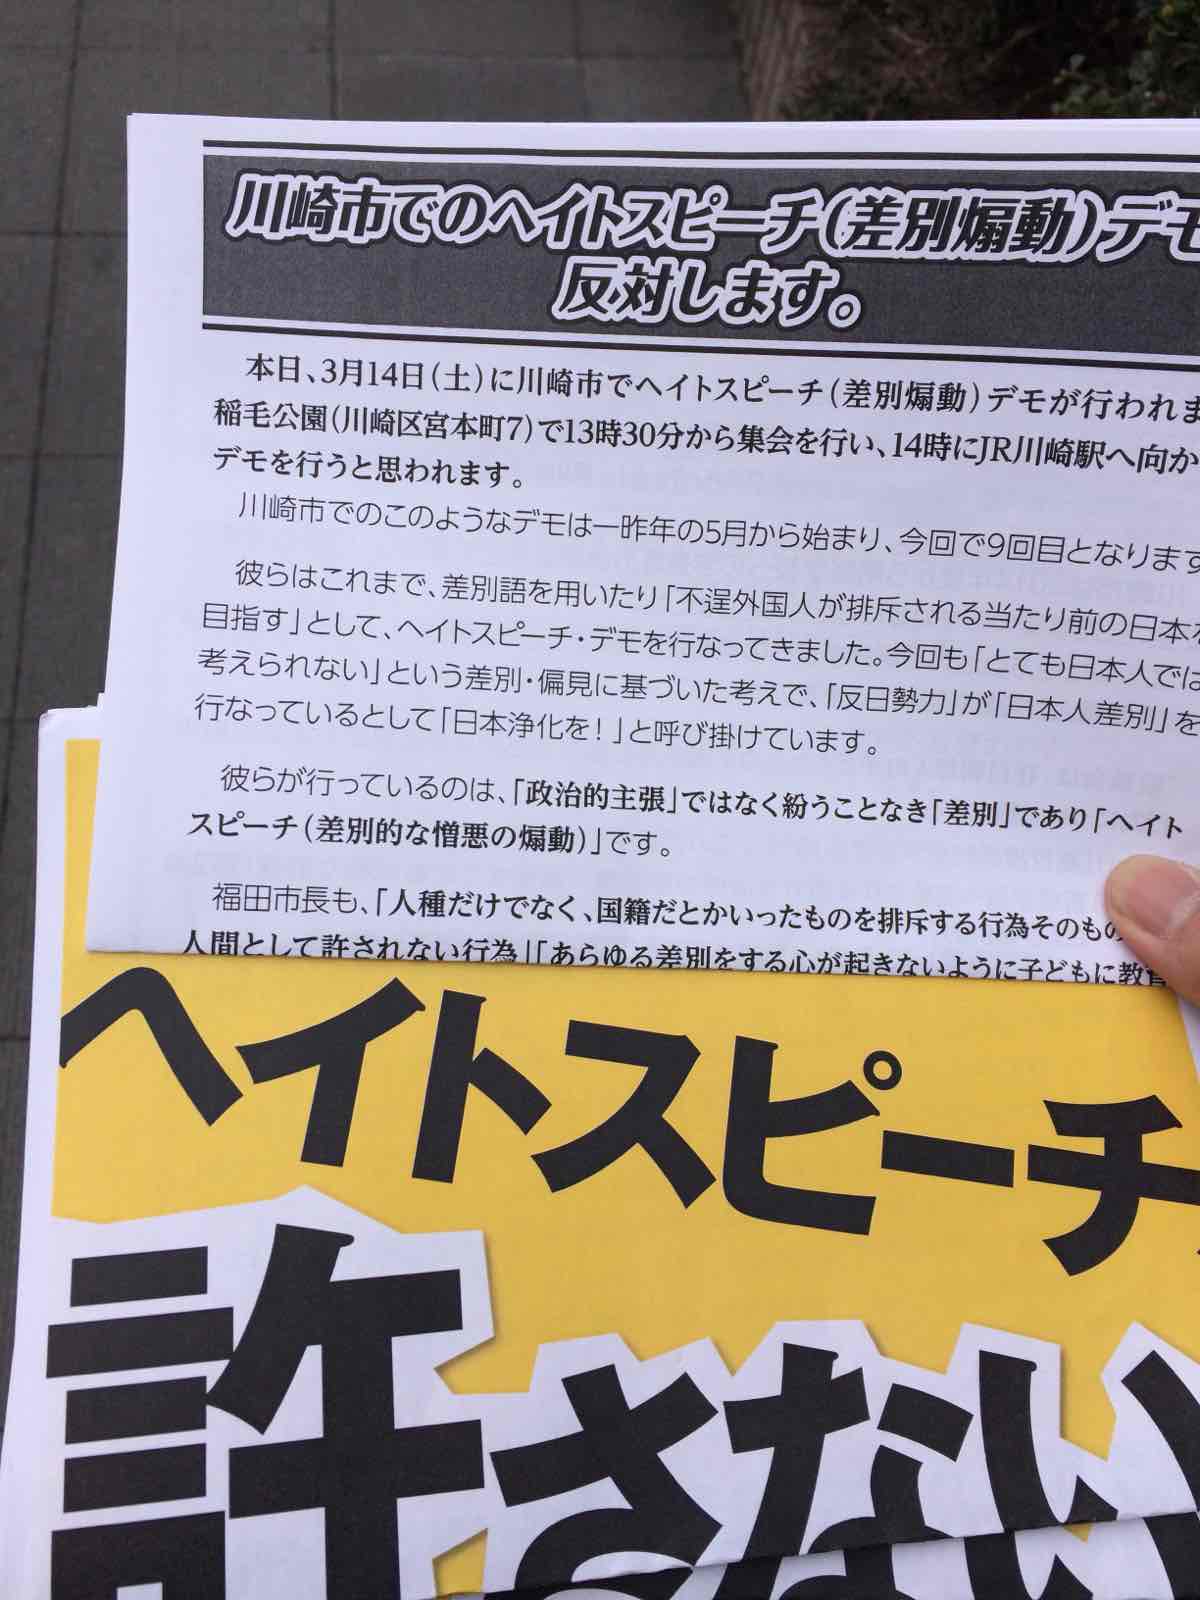 川崎市でのヘイトスピーチ(差別煽動)デモ
反対します。
本日、3月14日(土)に川崎市でヘイトスピーチ(差別煽動)デモが行われま
稲毛公園(川崎区宮本町7)で13時30分から集会を行い、14時にJR川崎駅へ向か
デモを行うと思われます。
川崎市でのこのようなデモは一昨年の5月から始まり、今回で9回目となります
彼らはこれまで、差別語を用いたり「不逞外国人が排斥される当たり前の日本を
目指す」として、ヘイトスピーチ・デモを行なってきました。今回も「とても日本人では
考えられない」という差別・偏見に基づいた考えで、「反日勢力」が「日本人差別」を
行なっているとして「日本浄化を!」と呼び掛けています。
彼らが行っているのは、「政治的主張」ではなく紛うことなき「差別」であり「ヘイト
スピーチ(差別的な憎悪の煽動)」です。
福田市長も、「人種だけでなく、国籍だとかいったものを排斥する行為そのもの
人間として許されない行為」「あらゆる差別をする心が起きないように子どもに教育
ヘイトスピーチ
許さない